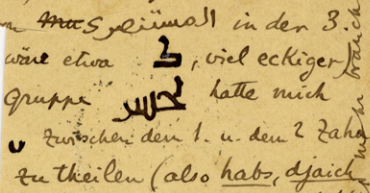 Mus المستنصر in den 3.
wäre etwa د, viel eckiger
Gruppe hatte mich
zwischen den 1. u. den 2 Zahn
zu theilen (also habs, djaich